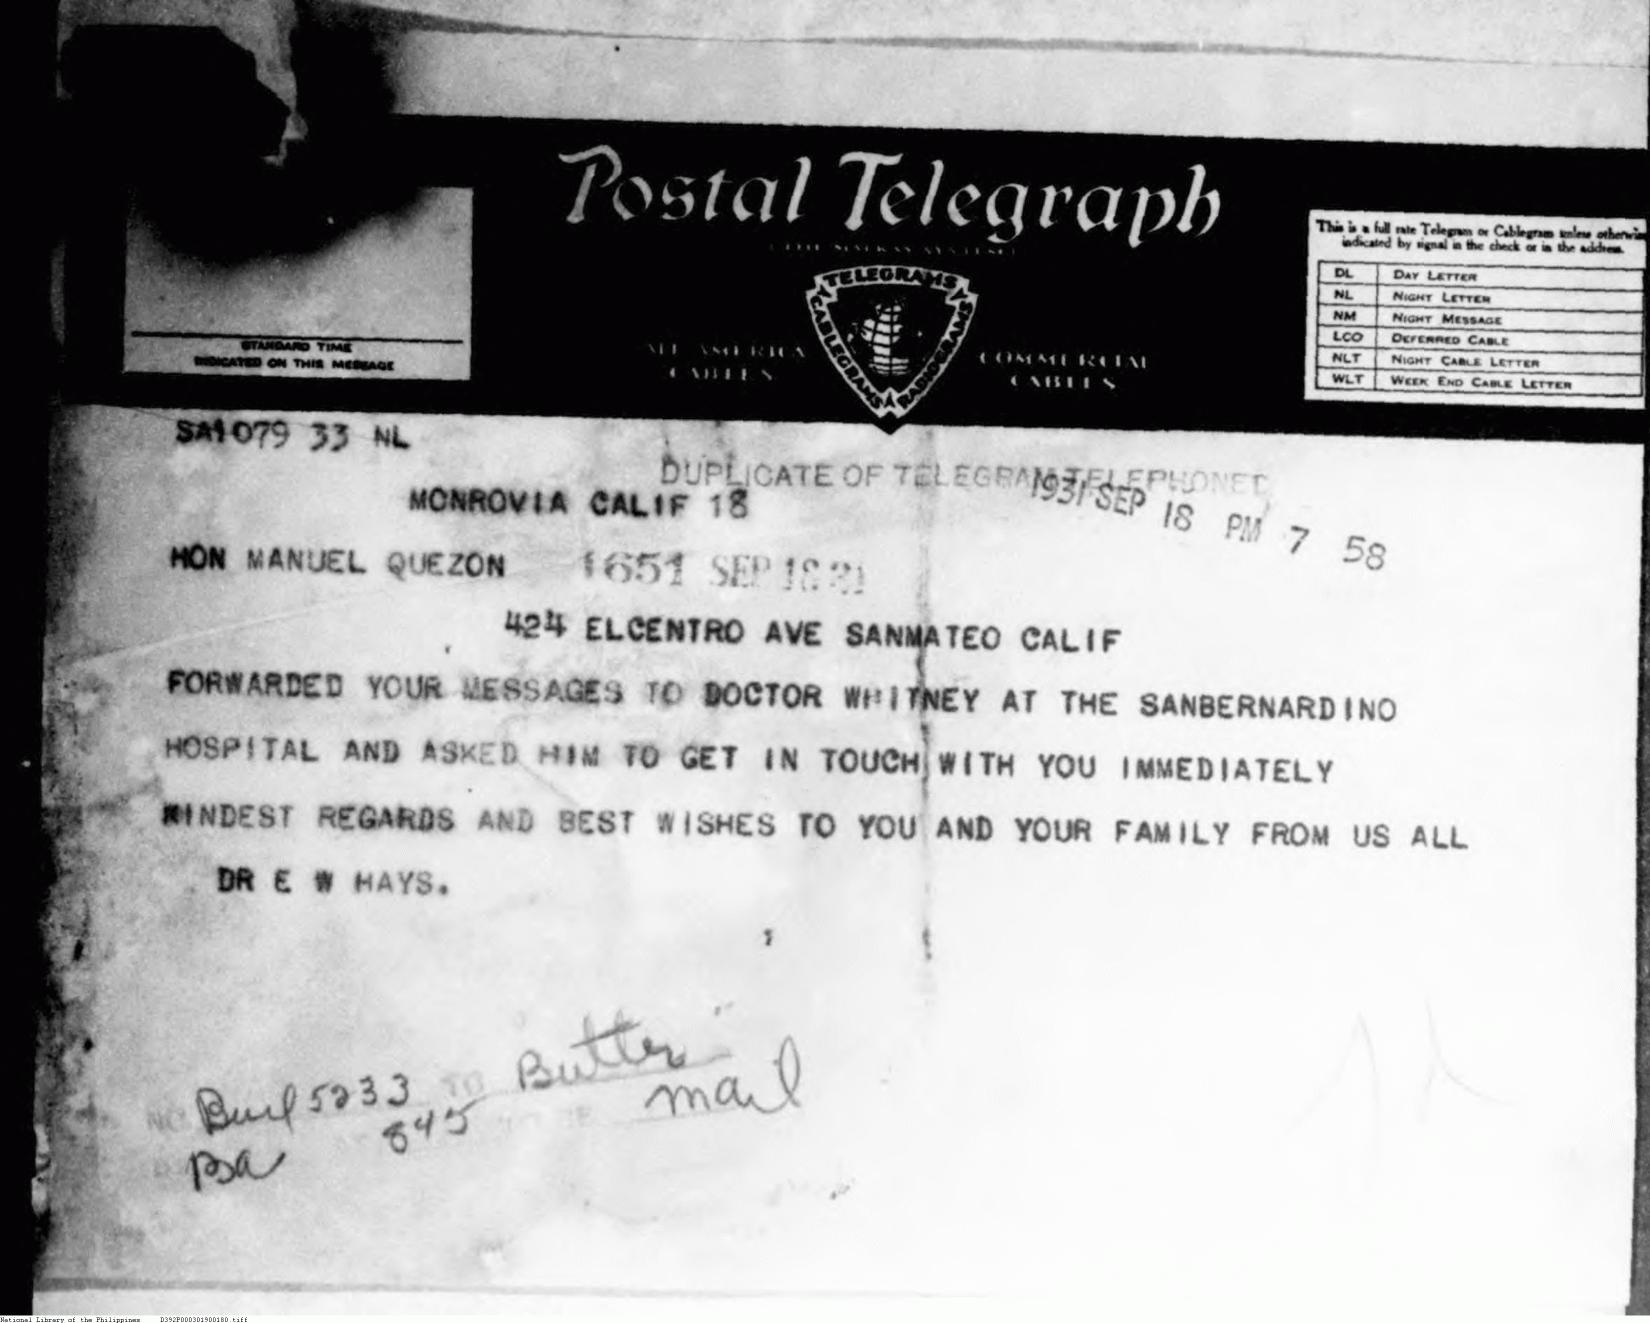 Postal Telegraph
THE MACKAY SYSTEM
TELEGRAMS
CABLEGRAMS
RADIOGRAMS
ALL AMERICA
CABLES
COMMERCIAL
CABLES
STANDARD TIME
INDICATED ON THIS MESSAGE
This is a full rate Telegram or Cablegram unless otherwise
indicated by signal in the check or in the address.
DL DAY LETTER
NL NIGHT LETTER
NM NIGHT MESSAGE
LCO DEFERRED CABLE
NLT NIGHT CABLE LETTER
WLT WEEK END CABLE LETTER
SA1079 33 NL
DUPLICATE OF TELEGRAM TELEPHONED
MONROVIA CALIF 18
1931 SEP 18 PM 7 58
HON MANUEL QUEZON 1651 SEP 18 31
424 ELCENTRO AVE SANMATEO CALIF
FORWARDED YOUR MESSAGES TO DOCTOR WHITNEY AT THE SANBERNARDINO
HOSPITAL AND ASKED HIM TO GET IN TOUCH WITH YOU IMMEDIATELY
KINDEST REGARDS AND BEST WISHES TO YOU AND YOUR FAMILY FROM US ALL
DR E W HAYS.
Burl 5233 TO Butler
845 mail
Ba
National Library of the Philippines D392P000301900180.tiff